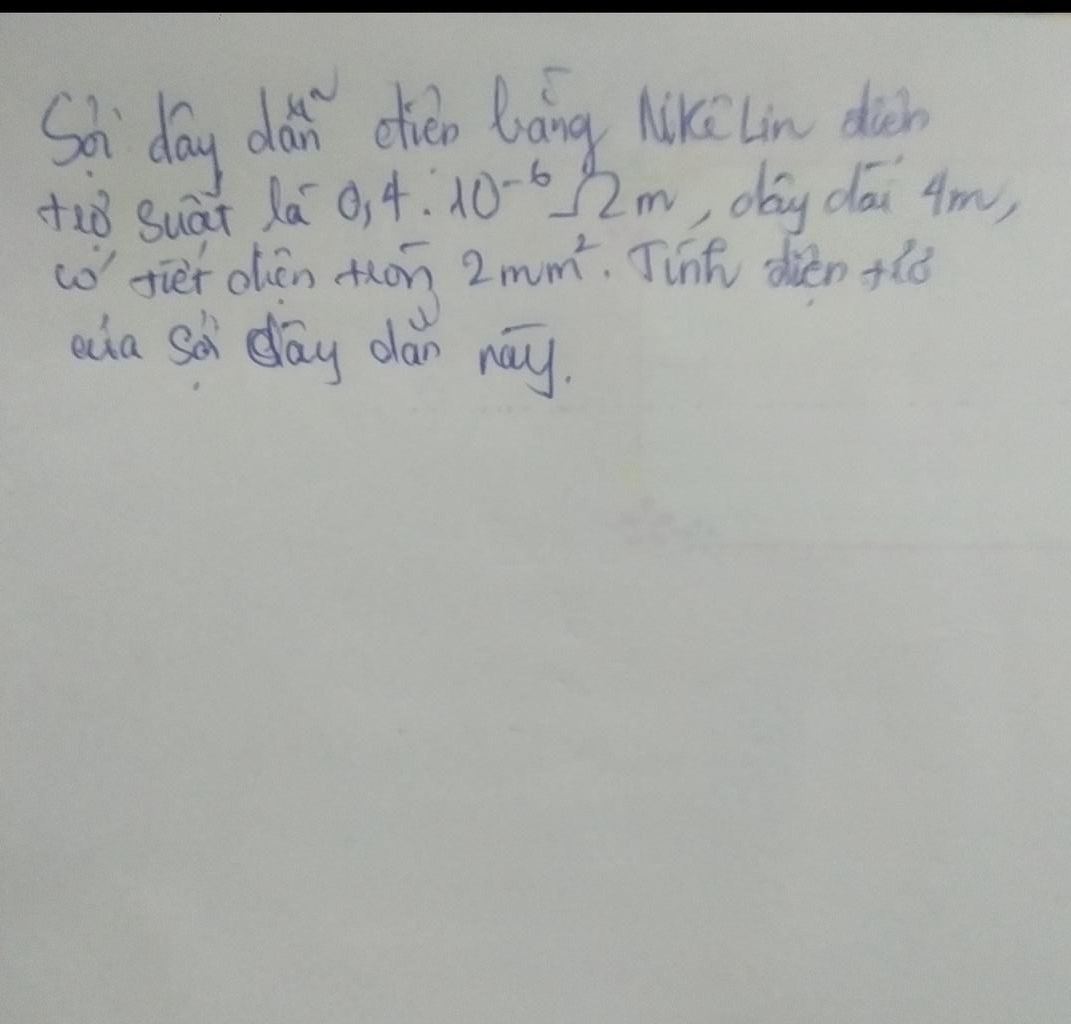 Sợi dây dẫn điện bằng Nikêlin điện
trở suất là 0,4.10⁻⁶ Ωm, dây dài 4m,
có tiết diện tròn 2mm². Tính điện trở
của sợi dây dẫn này.